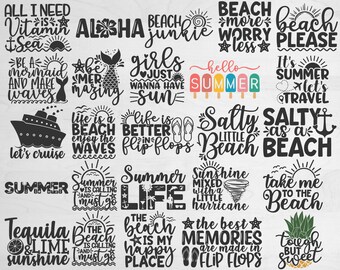 ALL I NEED
IS
Vitamin
Sea
ALOHA
beach
junkie
BEACH
more
WORRY
less
beach
PLEASE
BE A
mermaid
AND MAKE
waves
be
mer
mazing
girls
JUST
WANNA HAVE
sun
hello
SUMMER
IT'S
SUMMER
let's
TRAVEL
let's cruise
life is a
BEACH
enjoy the
WAVES
life is
BETTER
in
flip flops
Salty
little
BEACH
SALTY
as a
BEACH
SUMMER
THE
BEACH
IS CALLING
and i
must go
Summer
LIFE
SUNSHINE
MIXED
with a
little
hurricane
take me
TO THE
Beach
Tequila
LIME
sunshine
THE
BEACH
IS CALLING
and i
must go
THE
beach
IS MY
happy
PLACE!
the best
MEMORIES
are made in
FLIP FLOPS
tough
but
sweet